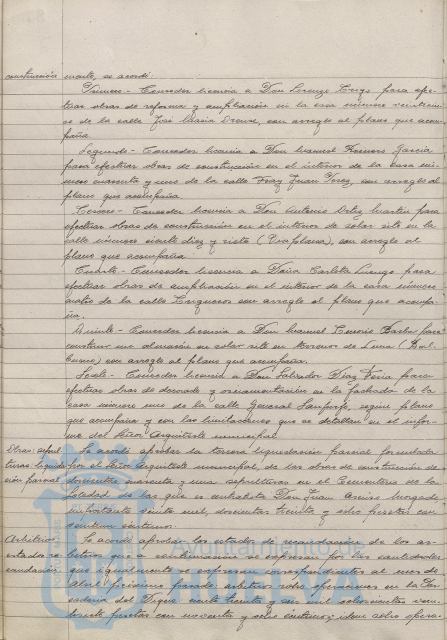 construcción marte, se acordó:
Primero.- Conceder licencia a Don Lorenzo para efec-
tuar obras de reforma y ampliación en la casa número
de la calle José María con arreglo al plano que acom-
paña.
Segundo.- Conceder licencia a Don Manuel Romero García
para efectuar obras de construcción en el interior de la casa nú-
mero cuarenta y uno de la calle Fray Juan Pérez, con arreglo al
plano que acompaña.
Tercero.- Conceder licencia a Don Antonio Ortiz Martín para
efectuar obras de construcción en el interior de solar sito en la
calle número ciento diez y siete con arreglo al
plano que acompaña.
Cuarto.- Conceder licencia a Doña Carlota Luengo para
efectuar obras de ampliación en el interior de la casa número
cuatro de la calle con arreglo al plano que acompa-
ña.
Quinto.- Conceder licencia a Don Manuel Tenorio Barba para
construir un almacén en solar sito en de Luna
con arreglo al plano que acompaña.
Sexto.- Conceder licencia a Don Salvador Díaz para
efectuar obras de decorado y ornamentación en la fachada de la
casa número uno de la calle General Sanjurjo, según plano
que acompaña y con las limitaciones que se detallan en el infor-
me del Señor Arquitecto municipal.
Obras sepul- Se acordó aprobar la tercera liquidación parcial formulada
turas liquida- por el Señor Arquitecto municipal, de las obras de construcción de
ción parcial doscientas cuarenta y una sepulturas en el Cementerio de la
Soledad de las que es contratista Don Juan
importante veinte mil, doscientas treinta y ocho pesetas con
céntimos.
Arbitrios Se acordó aprobar los estados de recaudación de los ar-
estado re- bitrios que a continuación se expresan por las cantidades
caudación que igualmente se expresan correspondientes al mes de
Abril próximo pasado: arbitrio sobre operaciones en la
del Tigre ciento treinta y seis mil ochocientas
pesetas con noventa y ocho céntimos; idem sobre opera-
Ayuntamiento de
HUELVA